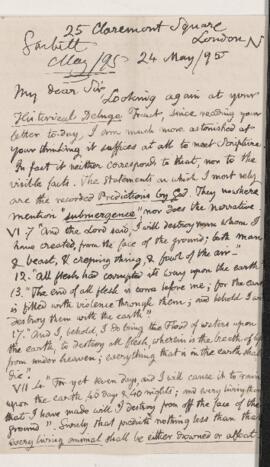 25 Claremont Square
London N
Garbett
May/95
24 May/95
My dear Sir
Looking again at your
Historical Deluge Tract, since reading your
letter to-day, I am much more astonished at
your thinking it suffices at all to meet Scripture.
In fact it neither corresponds to that, nor to the
visible facts. The statements on which I most rely
are the recorded Predictions by God. They nowhere
mention "submergence" nor does the narrative.
VI. 7. "And the Lord said, I will destroy man whom I
have created from the face of the ground; both man
& beast, & creeping thing, & fowl of the air."
12. "All flesh had corrupted its way upon the earth"
13. "The end of all flesh is come before me; for the earth
is filled with violence through them; and behold I will
destroy them with the earth."
17. "And I, behold, I do bring the Flood of waters upon
the earth, to destroy all flesh, wherein is the breath of life
from under heaven; everything that is in the earth shall
die."
VII 4. For yet seven days, and I will cause it to rain
upon the earth 40 days & 40 nights; and every living thing
that I have made will I destroy from off the face of the
ground". Surely that predicts nothing less than that
every living animal shall be either drowned or